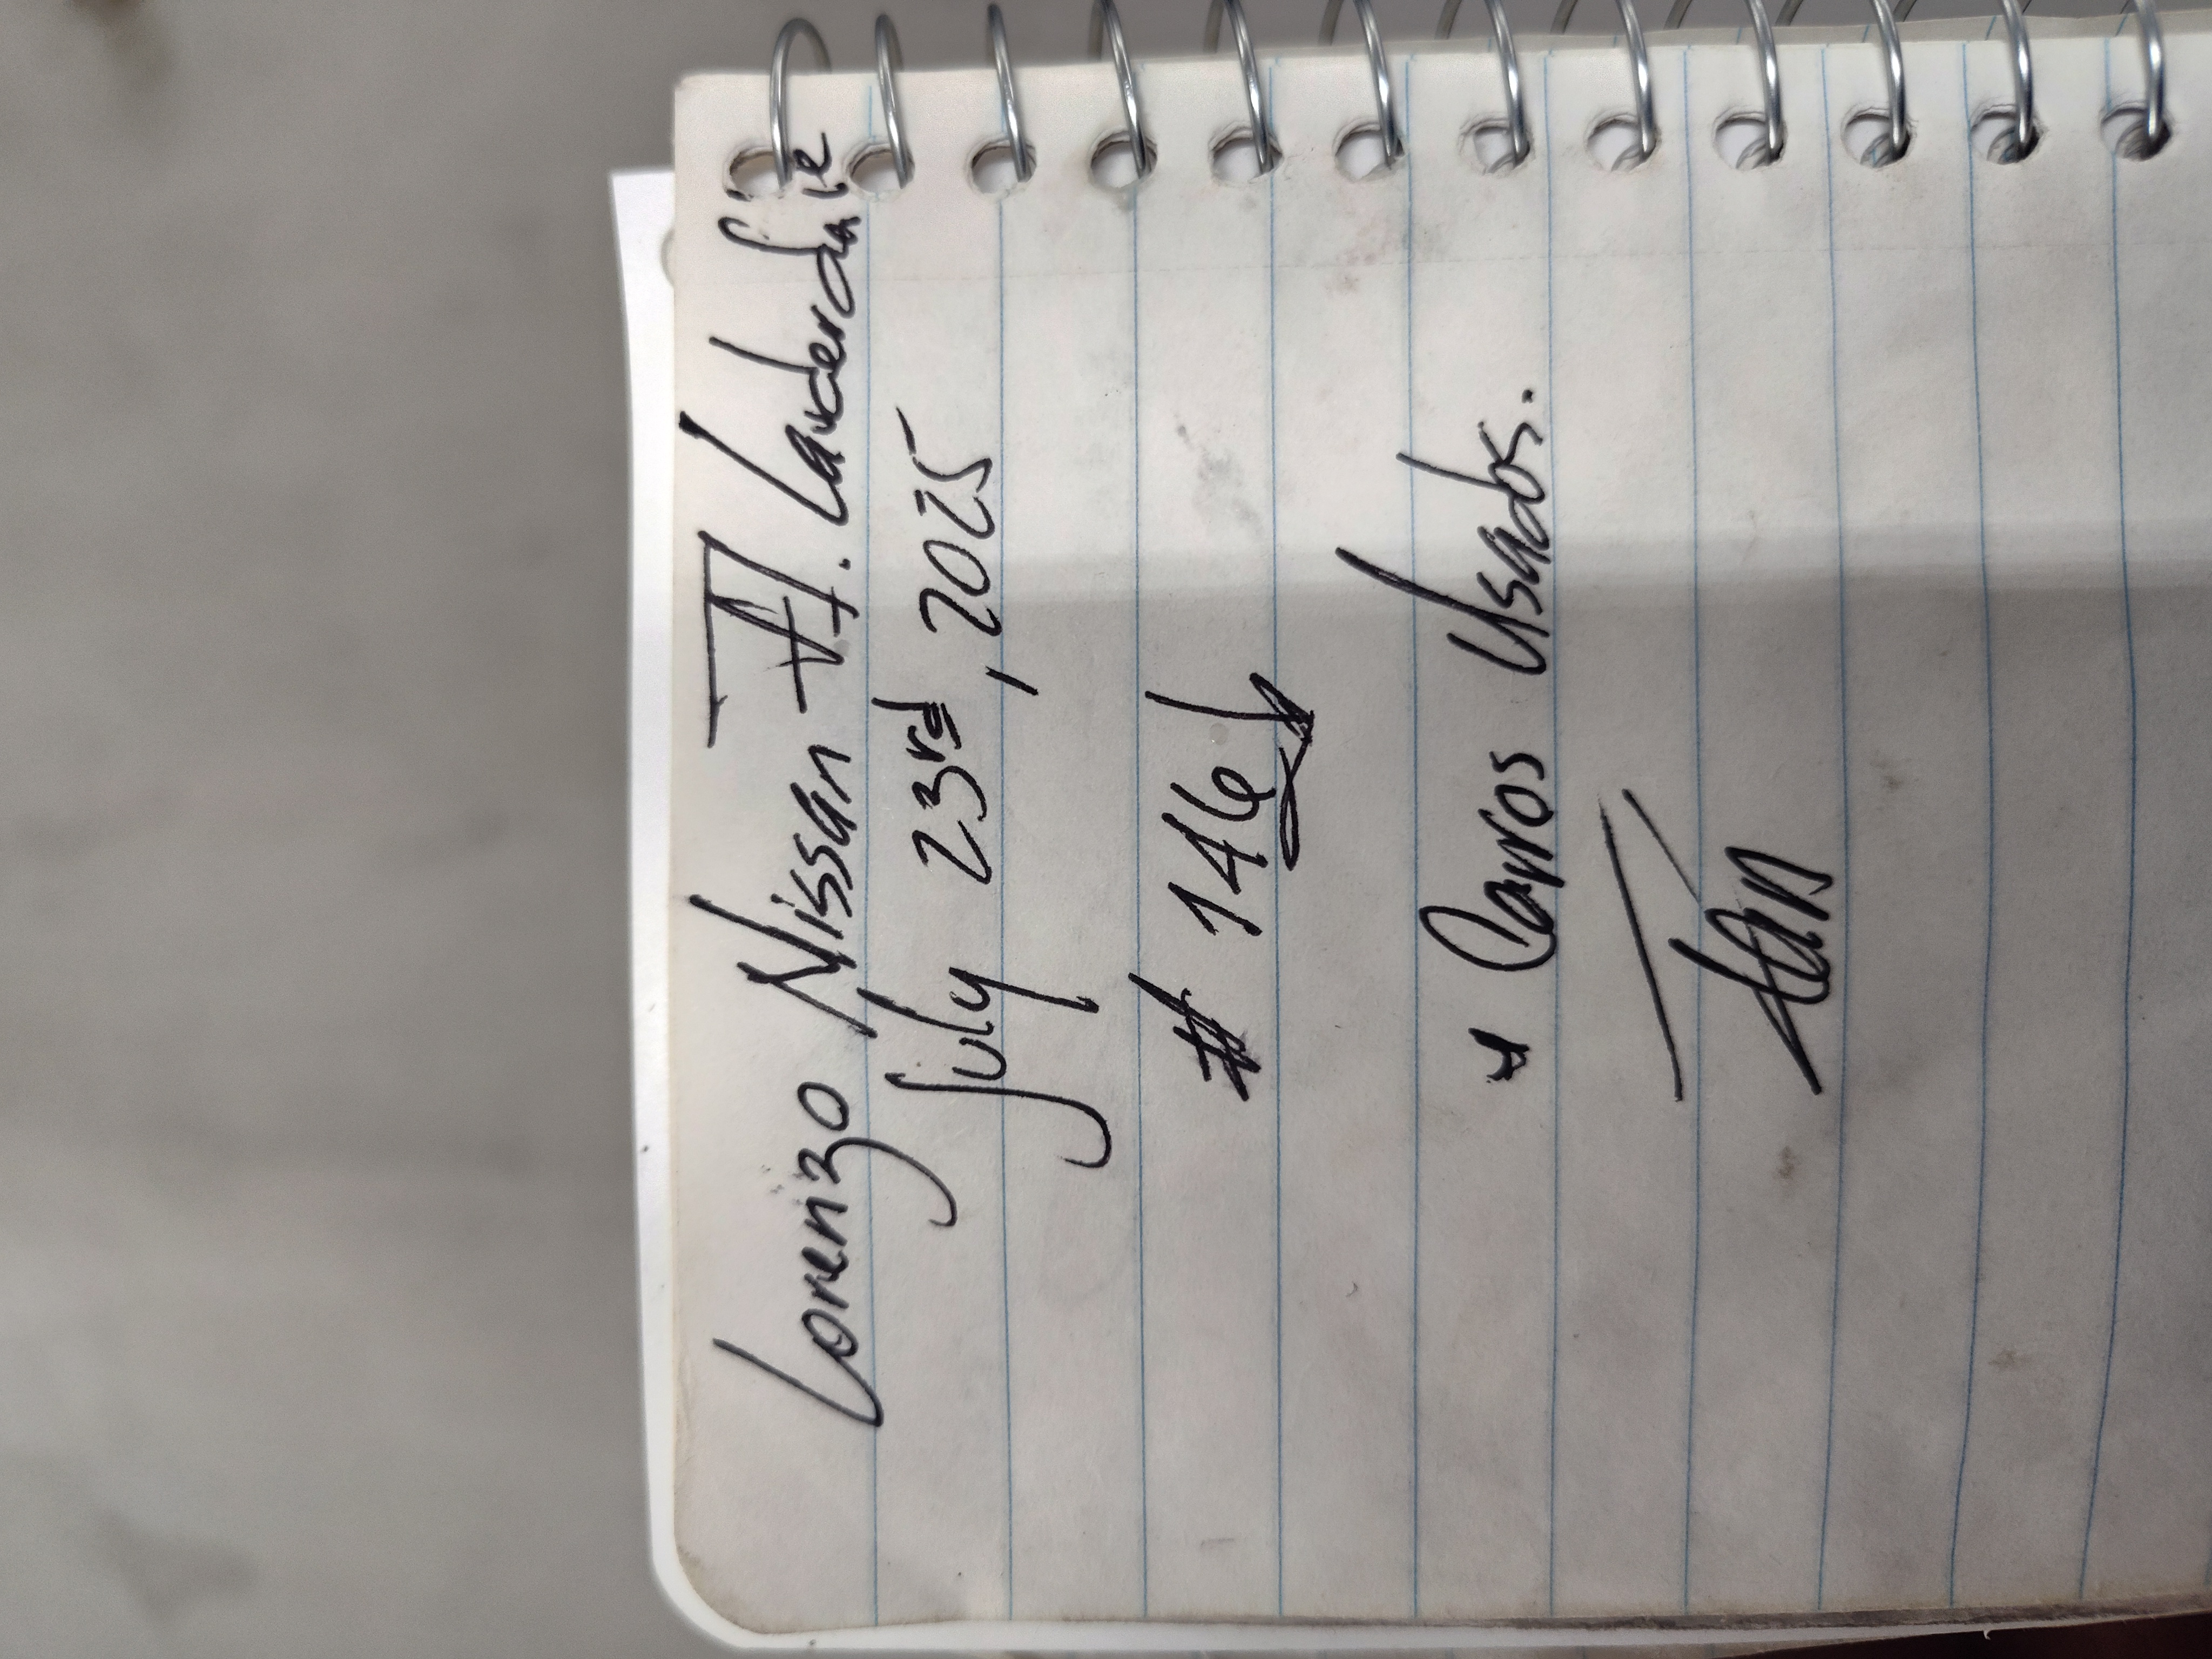 Lorenzo Nissan Ft. Lauderdale
July 23rd, 2025
# 146
* Carros Usados.